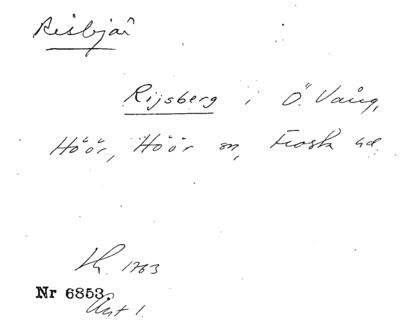 Risbjär
Rijsberg i Ö. Vång,
Höör, Höör sn, Frosta hd
Lk. 1763
Nr 6853.
Akt 1.